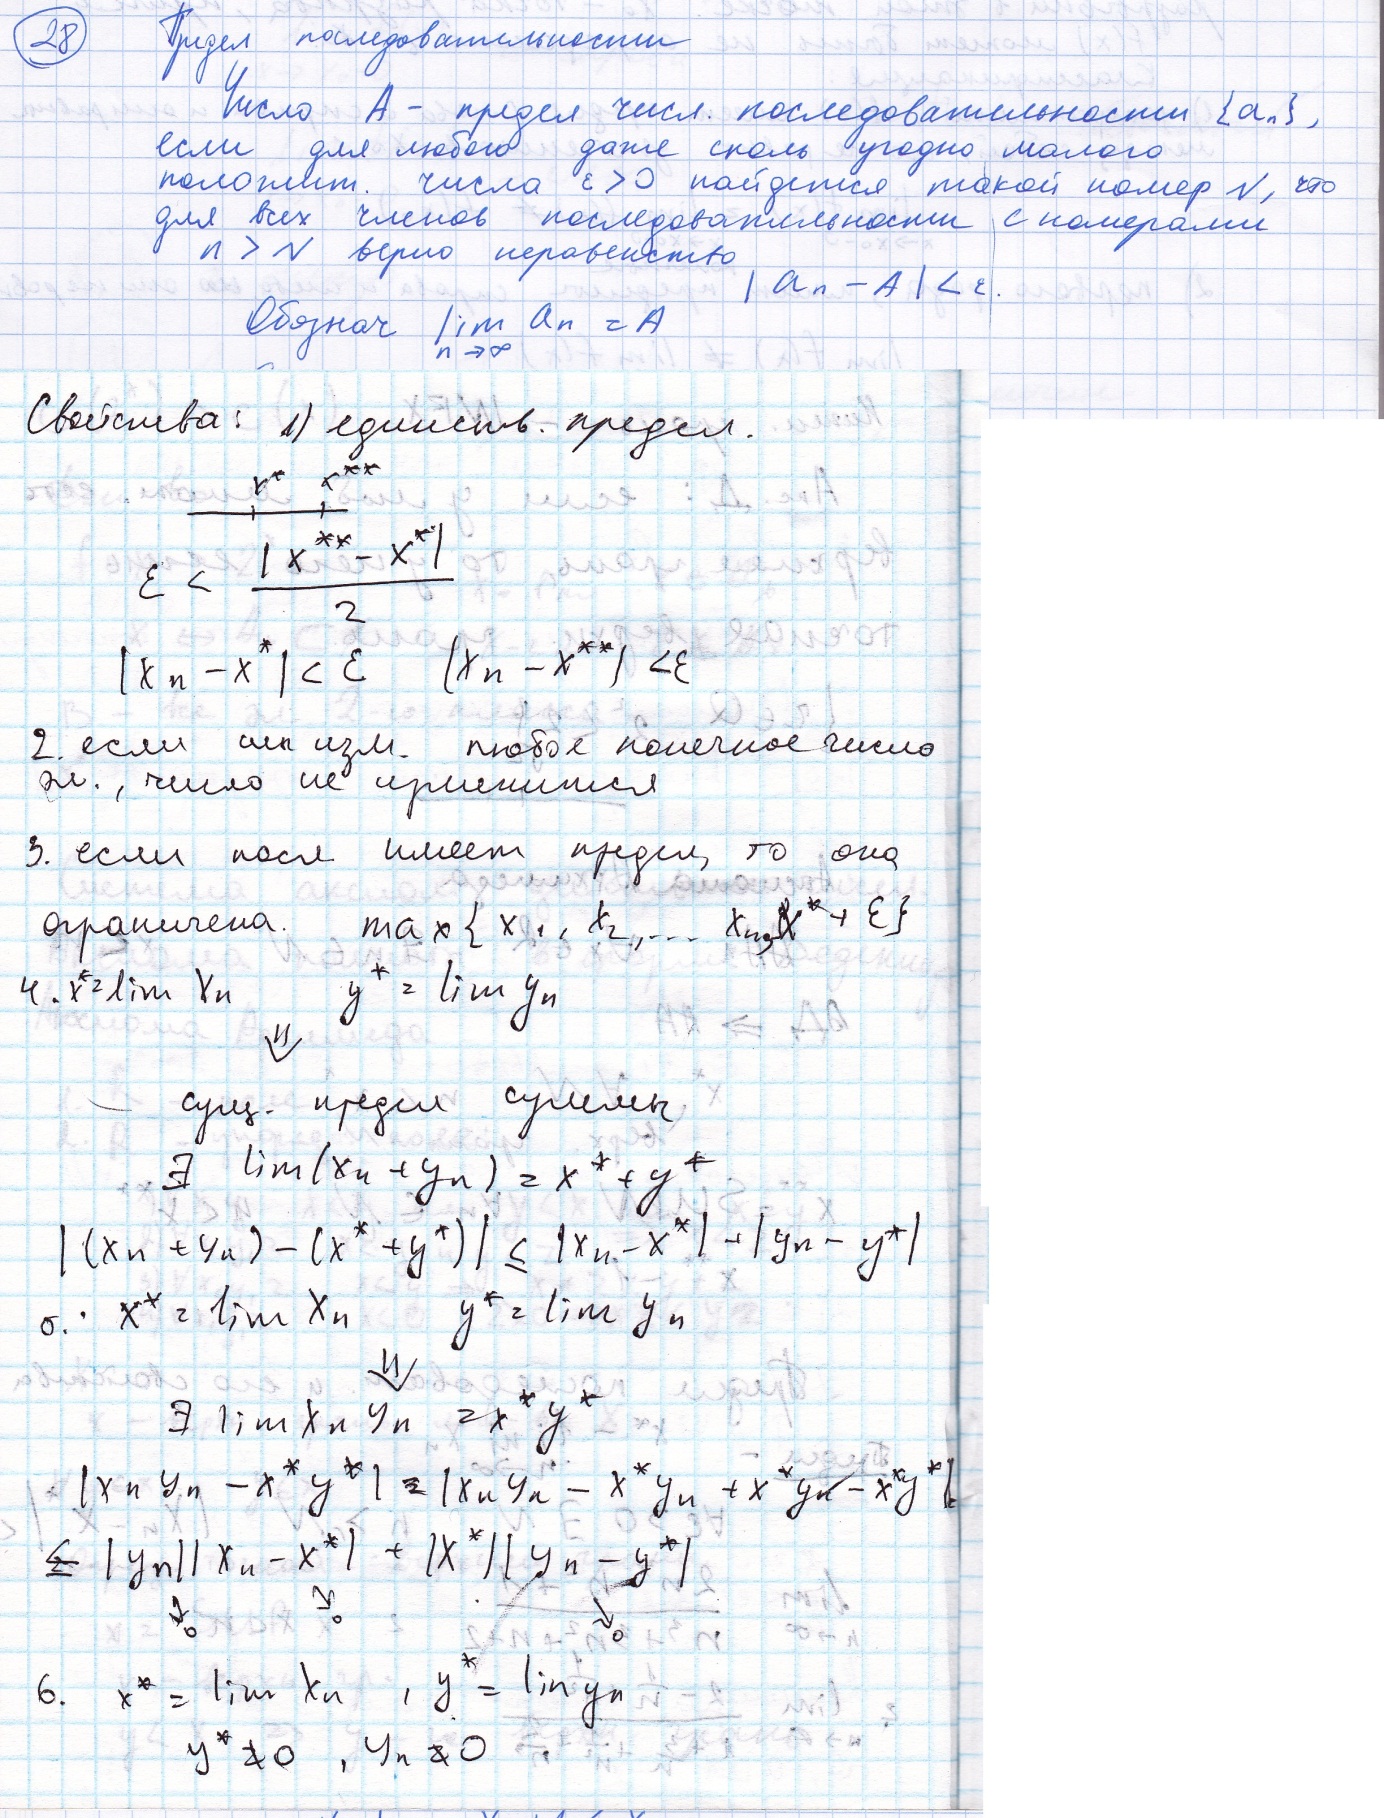 28 Предел последовательности
Число A – предел числ. последовательности {aₙ},
если для любого даже сколь угодно малого
положит. числа ε>0 найдется такой номер N, что
для всех членов последовательности с номерами
n > N верно неравенство
|aₙ – A| < ε.
Обознач lim aₙ = A
n→∞
Свойства: 1) единств. предел.
x* x**
ε < |x** – x*| / 2
|xₙ – x*| < ε |xₙ – x**| < ε
2. если изм. любое конечное число
эл., число не изменится
3. если посл имеет предел, то она
ограничена. max{x₁, x₂, ... xₙ, x* + ε}
4. x* = lim xₙ y* = lim yₙ
⇓
сущ. предел суммы
∃ lim(xₙ + yₙ) = x* + y*
|(xₙ + yₙ) – (x* + y*)| ≤ |xₙ – x*| + |yₙ – y*|
5. x* = lim xₙ y* = lim yₙ
⇓
∃ lim xₙ yₙ = x* y*
|xₙ yₙ – x* y*| = |xₙ yₙ – x* yₙ + x* yₙ – x* y*|
≤ |yₙ||xₙ – x*| + |x*||yₙ – y*|
↓0 ↓0 ↓0
6. x* = lim xₙ , y* = lim yₙ
y* ≠ 0 , yₙ ≠ 0